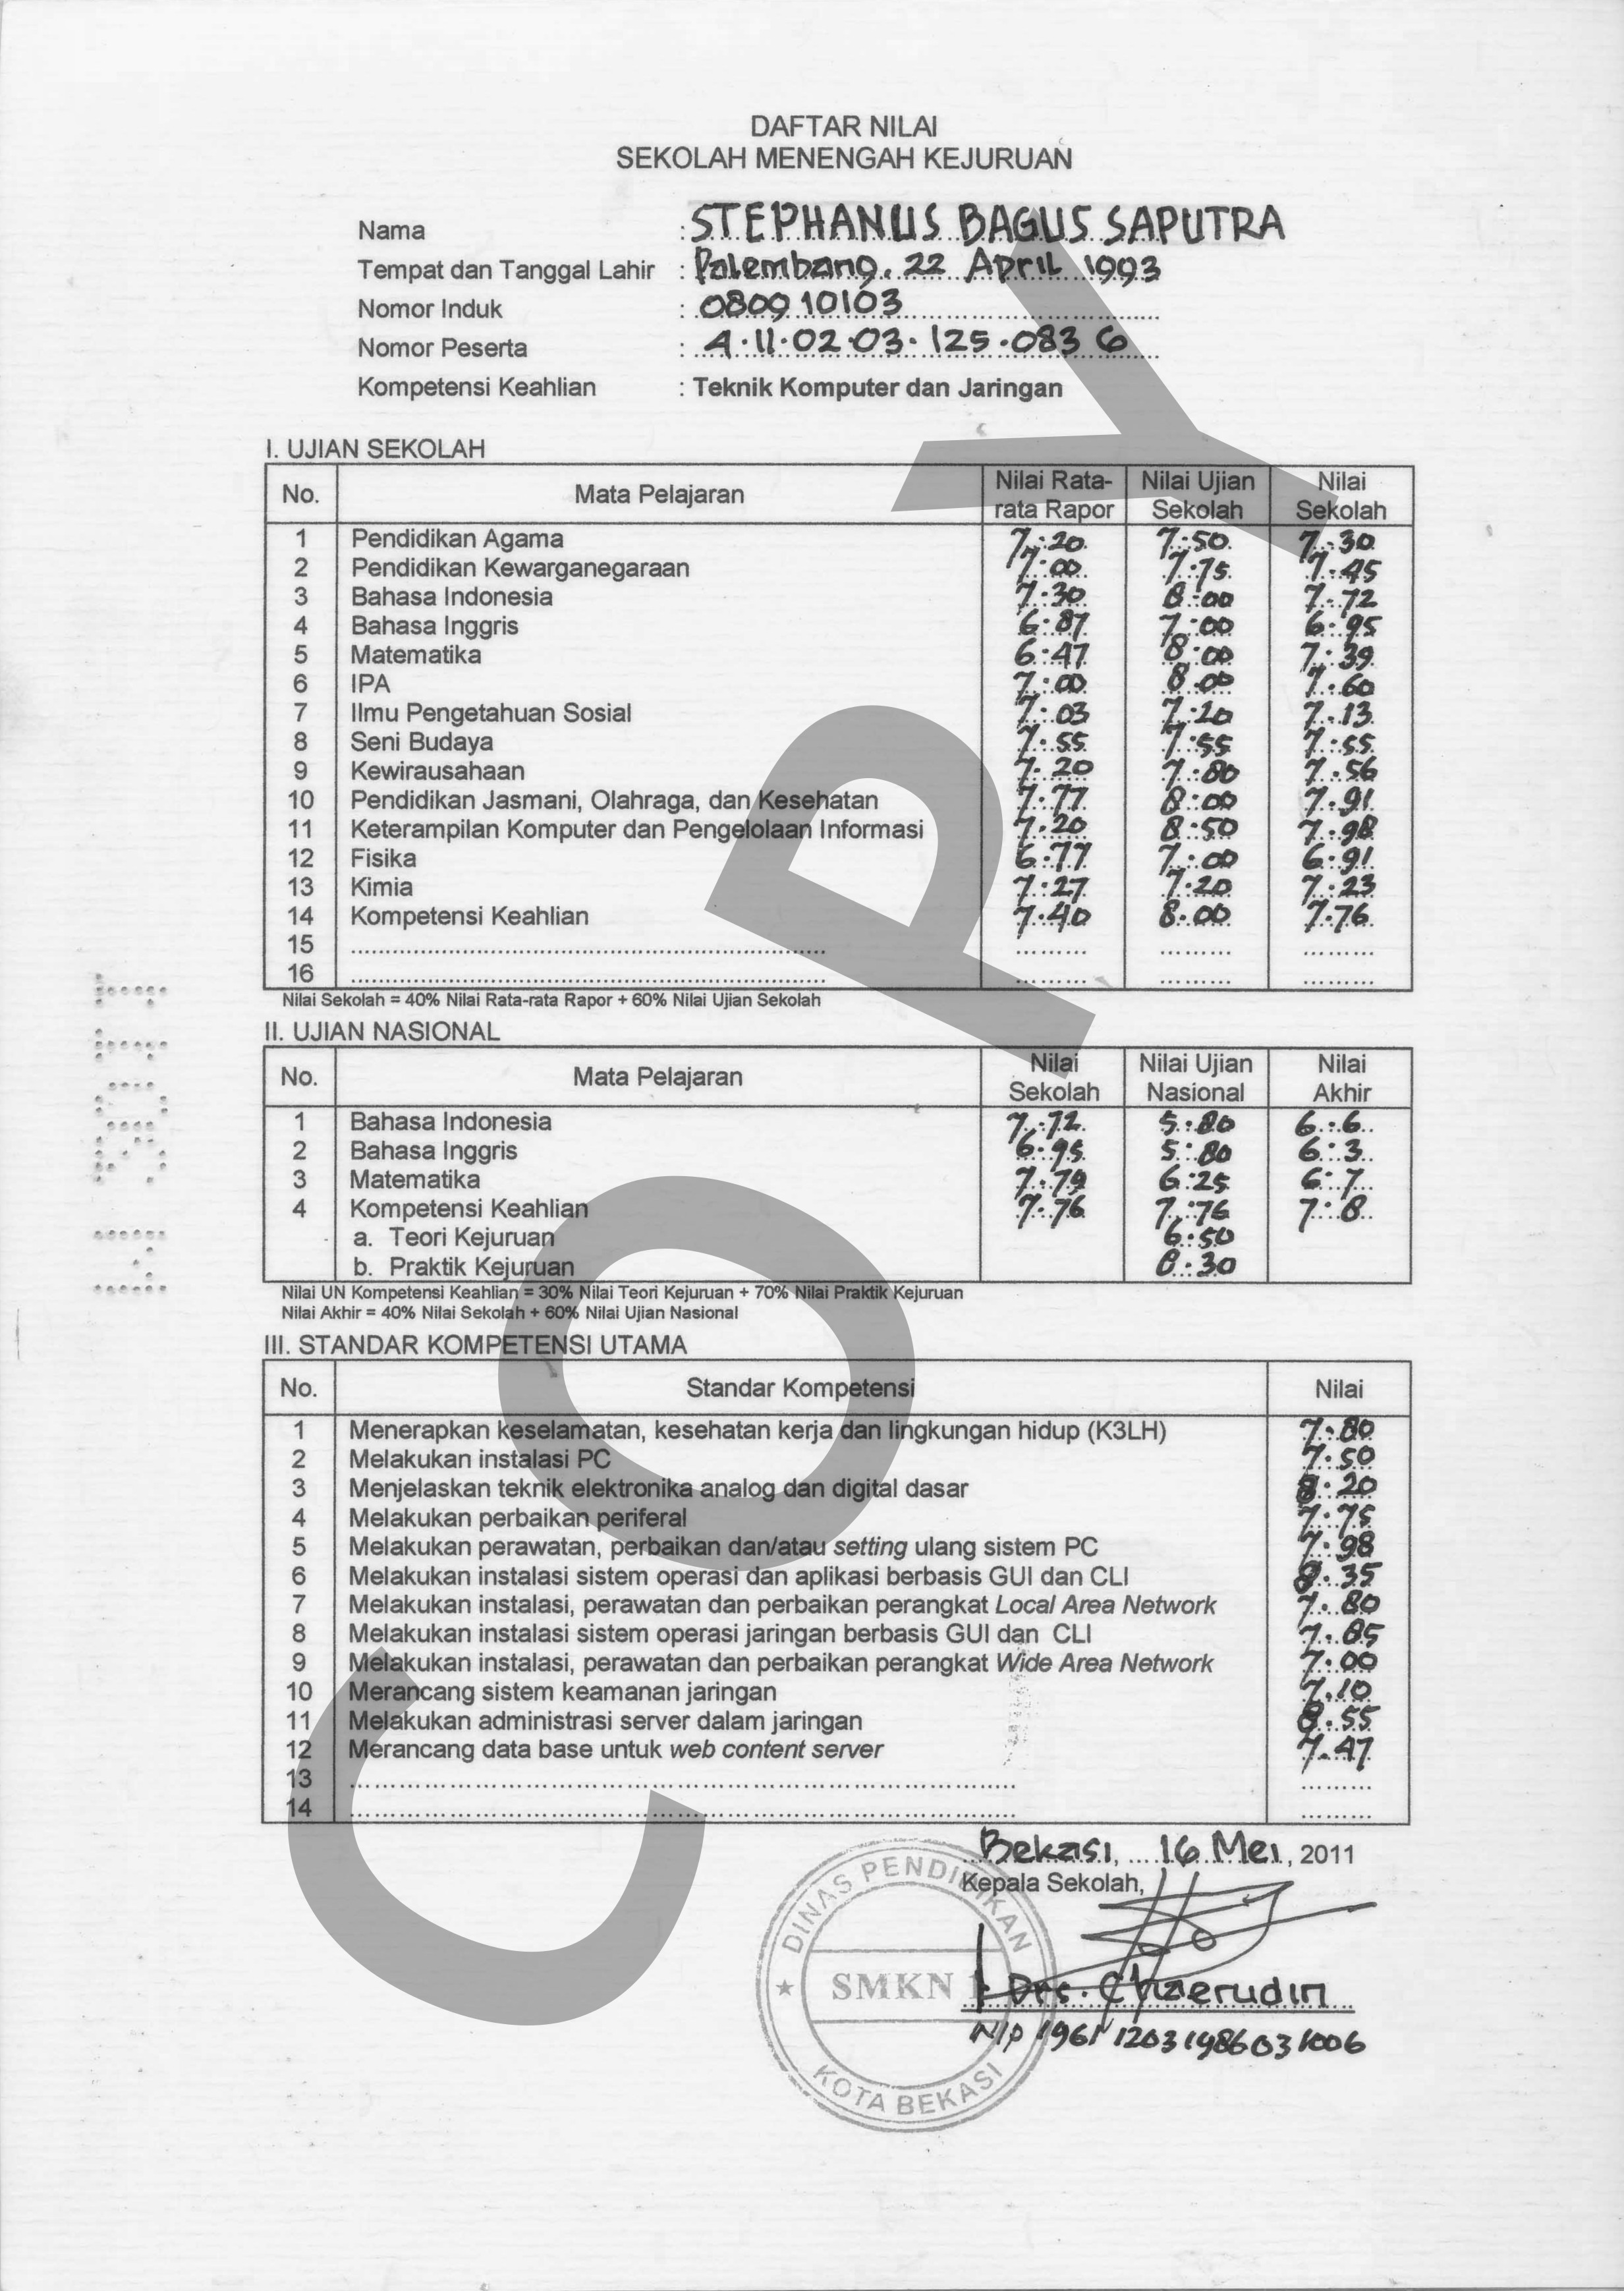 DAFTAR NILAI
SEKOLAH MENENGAH KEJURUAN
Nama : STEPHANUS BAGUS SAPUTRA
Tempat dan Tanggal Lahir : Palembang, 22 April 1993
Nomor Induk : 080910103
Nomor Peserta : 4.11.02.03.125.083 6
Kompetensi Keahlian : Teknik Komputer dan Jaringan
I. UJIAN SEKOLAH
No. Mata Pelajaran Nilai Rata-rata Rapor Nilai Ujian Sekolah Nilai Sekolah
1 Pendidikan Agama 7.20 7.50 7.30
2 Pendidikan Kewarganegaraan 7.00 7.75 7.45
3 Bahasa Indonesia 7.30 8.00 7.72
4 Bahasa Inggris 6.87 7.00 6.95
5 Matematika 6.47 8.00 7.39
6 IPA 7.00 8.00 7.60
7 Ilmu Pengetahuan Sosial 7.03 7.20 7.13
8 Seni Budaya 7.55 7.55 7.55
9 Kewirausahaan 7.20 7.80 7.56
10 Pendidikan Jasmani, Olahraga, dan Kesehatan 7.77 8.00 7.91
11 Keterampilan Komputer dan Pengelolaan Informasi 7.20 8.50 7.98
12 Fisika 6.77 7.00 6.91
13 Kimia 7.27 7.20 7.23
14 Kompetensi Keahlian 7.40 8.00 7.76
15
16
Nilai Sekolah = 40% Nilai Rata-rata Rapor + 60% Nilai Ujian Sekolah
II. UJIAN NASIONAL
No. Mata Pelajaran Nilai Sekolah Nilai Ujian Nasional Nilai Akhir
1 Bahasa Indonesia 7.72 5.80 6.6
2 Bahasa Inggris 6.95 5.80 6.3
3 Matematika 7.79 6.25 6.7
4 Kompetensi Keahlian 7.76 7.76 7.8
a. Teori Kejuruan 6.50
b. Praktik Kejuruan 8.30
Nilai UN Kompetensi Keahlian = 30% Nilai Teori Kejuruan + 70% Nilai Praktik Kejuruan
Nilai Akhir = 40% Nilai Sekolah + 60% Nilai Ujian Nasional
III. STANDAR KOMPETENSI UTAMA
No. Standar Kompetensi Nilai
1 Menerapkan keselamatan, kesehatan kerja dan lingkungan hidup (K3LH) 7.80
2 Melakukan instalasi PC 7.50
3 Menjelaskan teknik elektronika analog dan digital dasar 8.20
4 Melakukan perbaikan periferal 7.75
5 Melakukan perawatan, perbaikan dan/atau setting ulang sistem PC 7.98
6 Melakukan instalasi sistem operasi dan aplikasi berbasis GUI dan CLI 8.35
7 Melakukan instalasi, perawatan dan perbaikan perangkat Local Area Network 7.80
8 Melakukan instalasi sistem operasi jaringan berbasis GUI dan CLI 7.85
9 Melakukan instalasi, perawatan dan perbaikan perangkat Wide Area Network 7.00
10 Merancang sistem keamanan jaringan 7.10
11 Melakukan administrasi server dalam jaringan 8.55
12 Merancang data base untuk web content server 7.47
13
14
Bekasi, 16 Mei, 2011
Kepala Sekolah,
DINAS PENDIDIKAN
SMKN 1
KOTA BEKASI
Drs. Chaerudin
NIP 196112031986031006
COPY